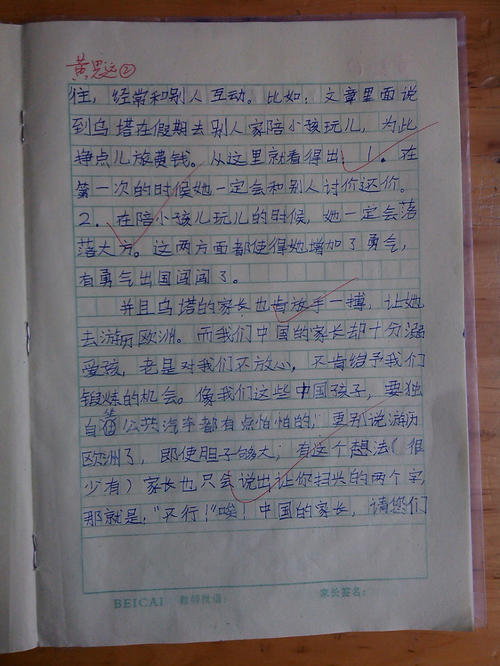 黄思远②
住，经常和别人互动。比如：文章里面说
到乌塔在假期去别人家陪小孩玩儿，为此
挣点儿旅费钱。从这里就看得出：1．在
第一次的时候她一定会和别人讨价还价。
2．在陪小孩儿玩儿的时候，她一定会落
落大方。这两方面都使得她增加了勇气，
有勇气出国闯闯了。
并且乌塔的家长也肯放手一搏，让她
去游历欧洲。而我们中国的家长却十分溺
爱孩，老是对我们不放心，不肯给予我们
锻炼的机会。像我们这些中国孩子，要独
自乘公共汽车都有点怕怕的，更别说游历
欧洲了，即使胆子够大，有这个想法（很
少有）家长也只会说出让你扫兴的两个字，
那就是，“不行！”唉！中国的家长，请您们
BEICAI 教师批语：
家长签名：